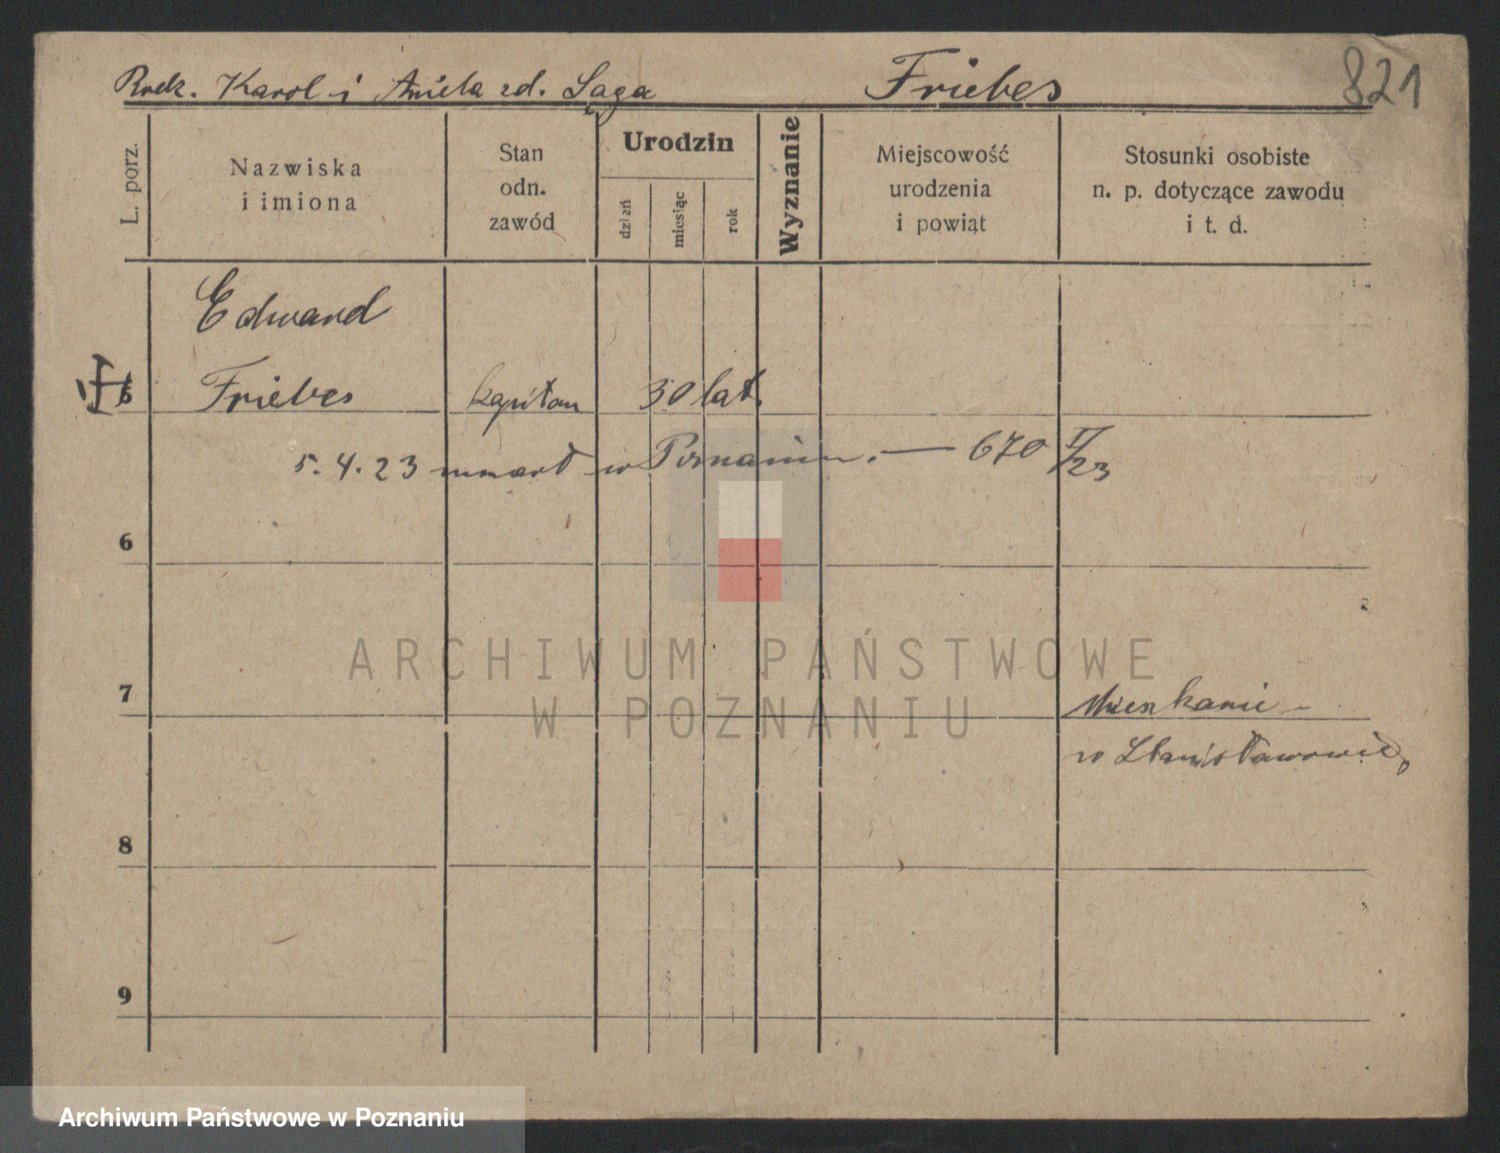 Rodz. Karol i Aniela zd. Saga Friebes 821
L. porz.
Nazwiska i imiona
Stan odn. zawód
Urodzin
dzień
miesiąc
rok
Wyznanie
Miejscowość urodzenia i powiat
Stosunki osobiste n. p. dotyczące zawodu i t. d.
Edward
5 Friebes kapitan 30 lat.
5.4.23 umarł w Poznaniu. — 670 /23
6
ARCHIWUM PAŃSTWOWE
W POZNANIU
7 Mieszkanie -
w Stanisławowie,
8
9
Archiwum Państwowe w Poznaniu